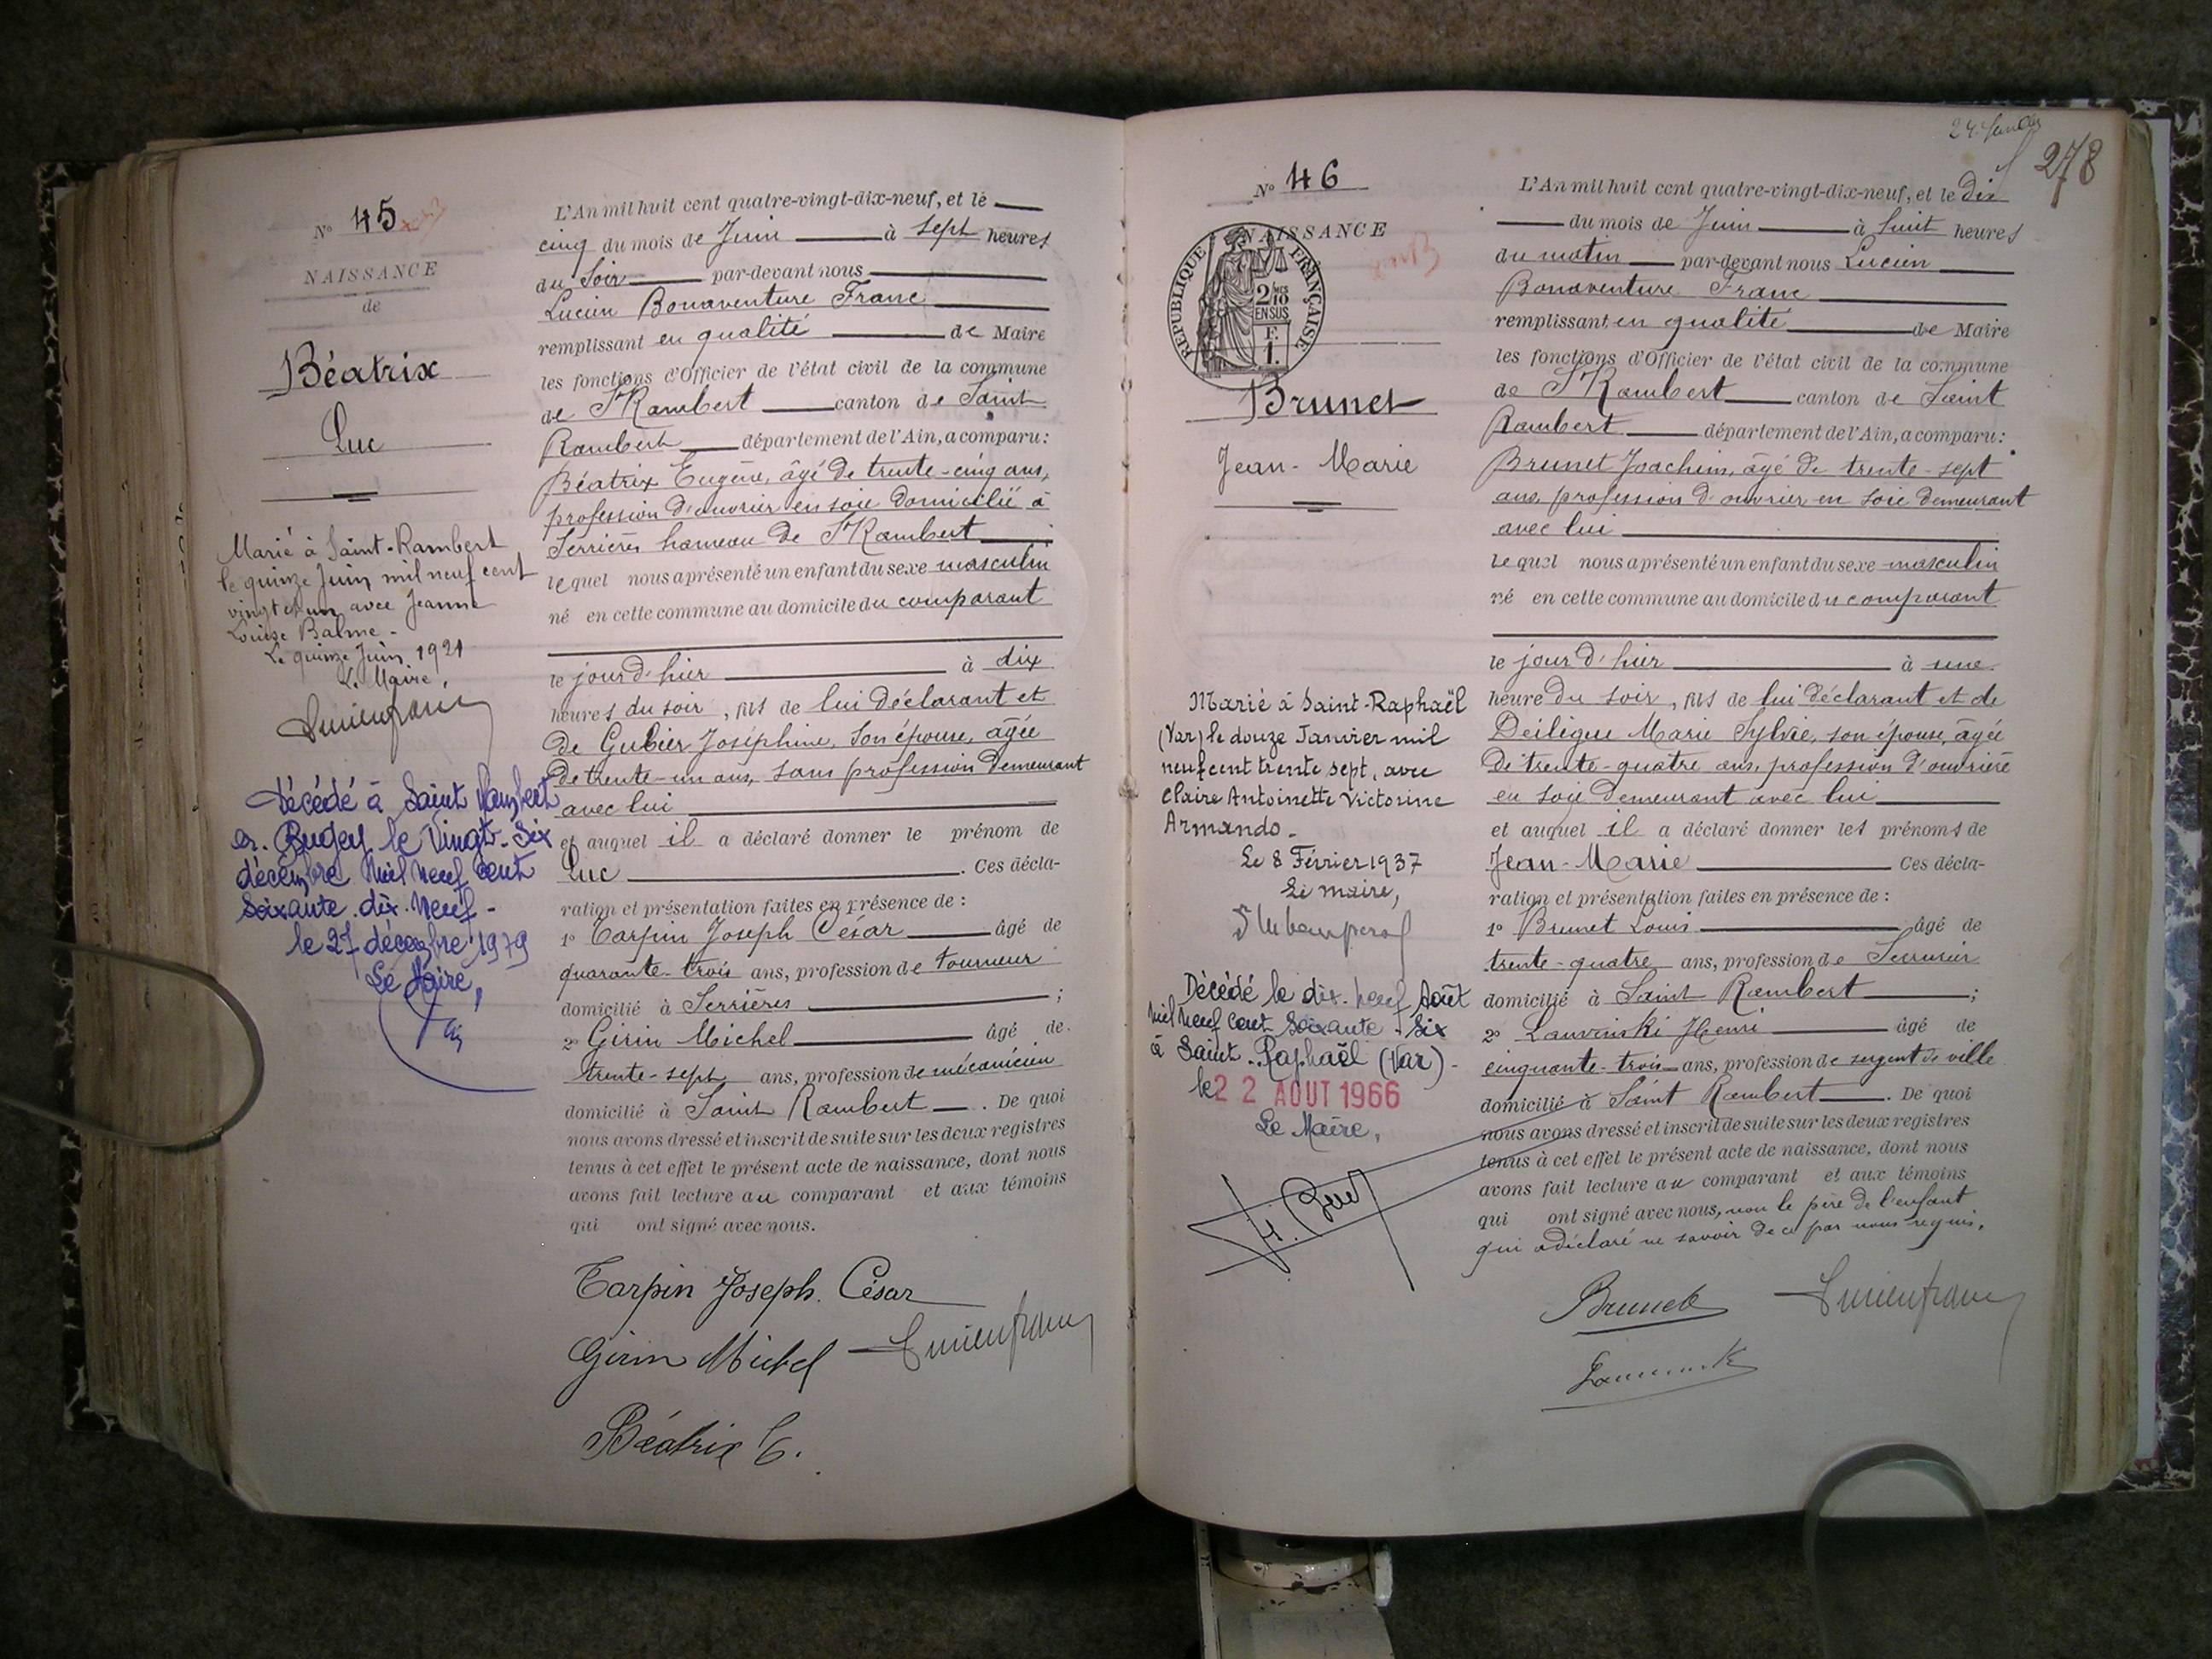 Nº 45
NAISSANCE
de
Béatrix
Luc
Marié à Saint-Rambert
le quinze Juin mil neuf cent
vingt et un avec Jeanne
Louise Balme -
Le quinze Juin 1921
Le Maire,
Décédé à Saint Rambert
en Bugey le Vingt-Six
décembre Mil Neuf Cent
Soixante dix Neuf -
le 27 décembre 1979
Le Maire,
L'An mil huit cent quatre-vingt-dix-neuf, et le
cinq du mois de Juin à sept heures
du Soir par-devant nous
Lucien Bonaventure Franc
remplissant en qualité de Maire
les fonctions d'Officier de l'état civil de la commune
de St Rambert canton de Saint
Rambert département de l'Ain, a comparu :
Béatrix Eugène, âgé de trente-cinq ans,
profession d'ouvrier en soie domicilié à
Serrières hameau de St Rambert
le quel nous a présenté un enfant du sexe masculin
né en cette commune au domicile du comparant
le jour d'hier à dix
heures du soir, fils de lui déclarant et
de Gubier Joséphine, son épouse, âgée
de trente-un ans, sans profession demeurant
avec lui
et auquel il a déclaré donner le prénom de
Luc . Ces décla-
ration et présentation faites en présence de :
1º Tarpin Joseph César âgé de
quarante-trois ans, profession de tourneur
domicilié à Serrières ;
2º Girin Michel âgé de
trente-sept ans, profession de mécanicien
domicilié à Saint Rambert . De quoi
nous avons dressé et inscrit de suite sur les deux registres
tenus à cet effet le présent acte de naissance, dont nous
avons fait lecture au comparant et aux témoins
qui ont signé avec nous.
Tarpin Joseph César
Girin Michel Lucien franc
Béatrix E.
278
Nº 46
NAISSANCE
RÉPUBLIQUE FRANÇAISE
2/10 MES
EN SUS
F.
1.
Brunet
Jean-Marie
Marié à Saint-Raphaël
(Var) le douze Janvier mil
neuf cent trente sept, avec
Claire Antoinette Victorine
Armando -
Le 8 Février 1937
Le maire,
Décédé le dix-neuf Août
Mil Neuf Cent Soixante-Six
à Saint-Raphaël (Var) -
le 22 AOUT 1966
Le Maire,
L'An mil huit cent quatre-vingt-dix-neuf, et le dix
du mois de Juin à huit heures
du matin par-devant nous Lucien
Bonaventure Franc
remplissant en qualité de Maire
les fonctions d'Officier de l'état civil de la commune
de St Rambert canton de Saint
Rambert département de l'Ain, a comparu :
Brunet Joachim, âgé de trente-sept
ans, profession d'ouvrier en soie demeurant
avec lui
le quel nous a présenté un enfant du sexe masculin
né en cette commune au domicile du comparant
le jour d'hier à une
heure du soir, fils de lui déclarant et de
Deiléque Marie Sylvie, son épouse, âgée
de trente-quatre ans, profession d'ouvrière
en soie demeurant avec lui
et auquel il a déclaré donner les prénoms de
Jean-Marie Ces décla-
ration et présentation faites en présence de :
1º Brunet Louis âgé de
trente-quatre ans, profession de Serrurier
domicilié à Saint Rambert ;
2º Lauvinski Henri âgé de
cinquante-trois ans, profession de sergent de ville
domicilié à Saint Rambert . De quoi
nous avons dressé et inscrit de suite sur les deux registres
tenus à cet effet le présent acte de naissance, dont nous
avons fait lecture au comparant et aux témoins
qui ont signé avec nous, non le père de l'enfant
qui a déclaré ne savoir de ce par nous requis.
Brunet Lucien franc